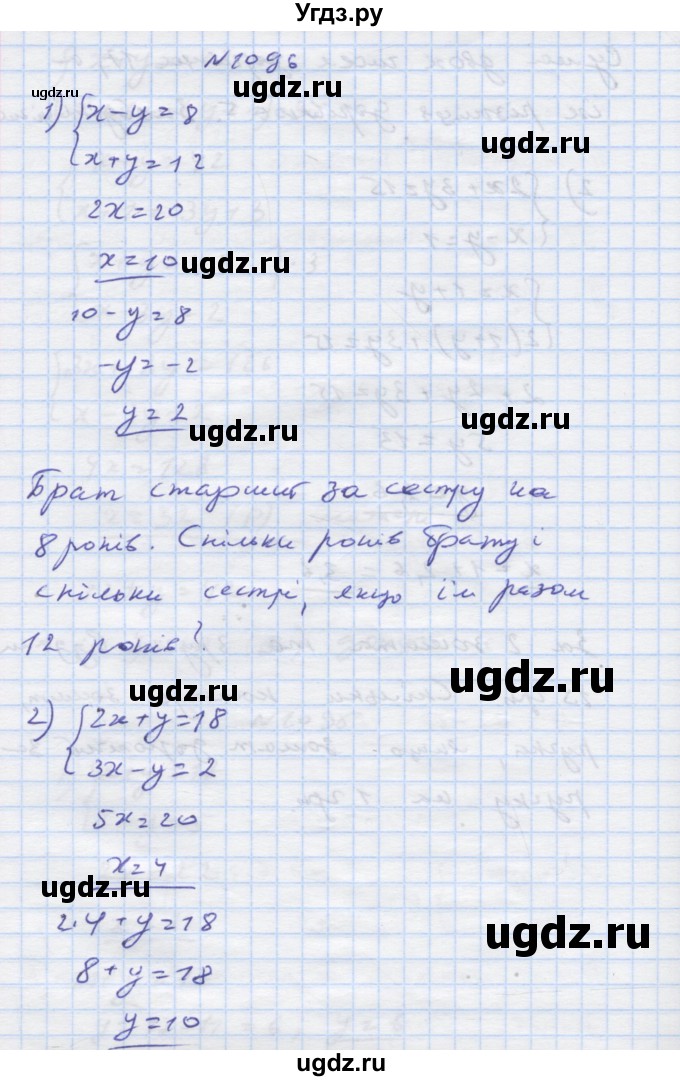 Угдз.ру
N 1096
ugdz.ru
ugdz.ru
1) { x - y = 8
x + y = 12
ugdz.ru
2x = 20
x = 10
ugdz.ru
10 - y = 8
-y = -2
y = 2
ugdz.ru
ugdz.ru
Брат старший за сестру на
8 років. Скільки років брату і
скільки сестрі, якщо їм разом
12 років?
ugdz.ru
ugdz.ru
2) { 2x + y = 18
3x - y = 2
5x = 20
x = 4
ugdz.ru
2·4 + y = 18
ugdz.ru
8 + y = 18
y = 10
ugdz.ru